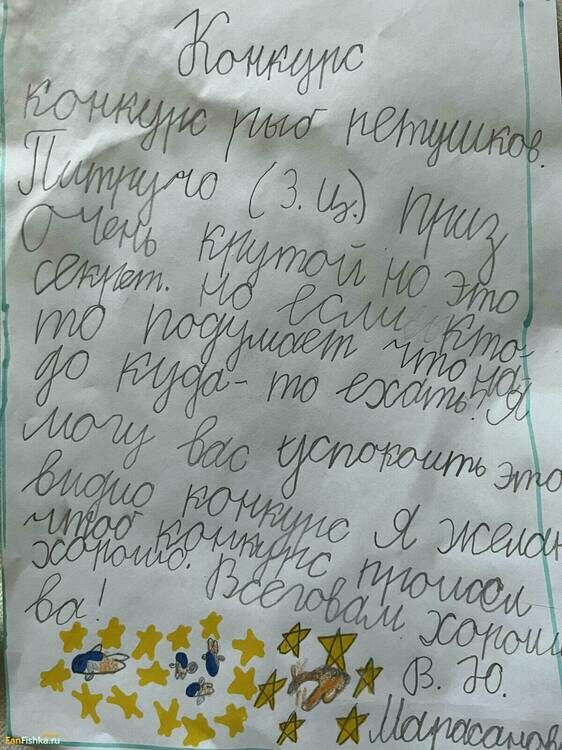 Конкурс
конкурс рыб петушков.
(З. Ц.) приз
Очень крутой но это
секрет. но если кто-
то подумает что на
до куда-то ехать! Я
могу вас успокоить это
видио конкурс Я желаю
чтоб конкурс прошол
хорошо. Всеговам хорош
ва!
В. Ю.
FanFishka.ru